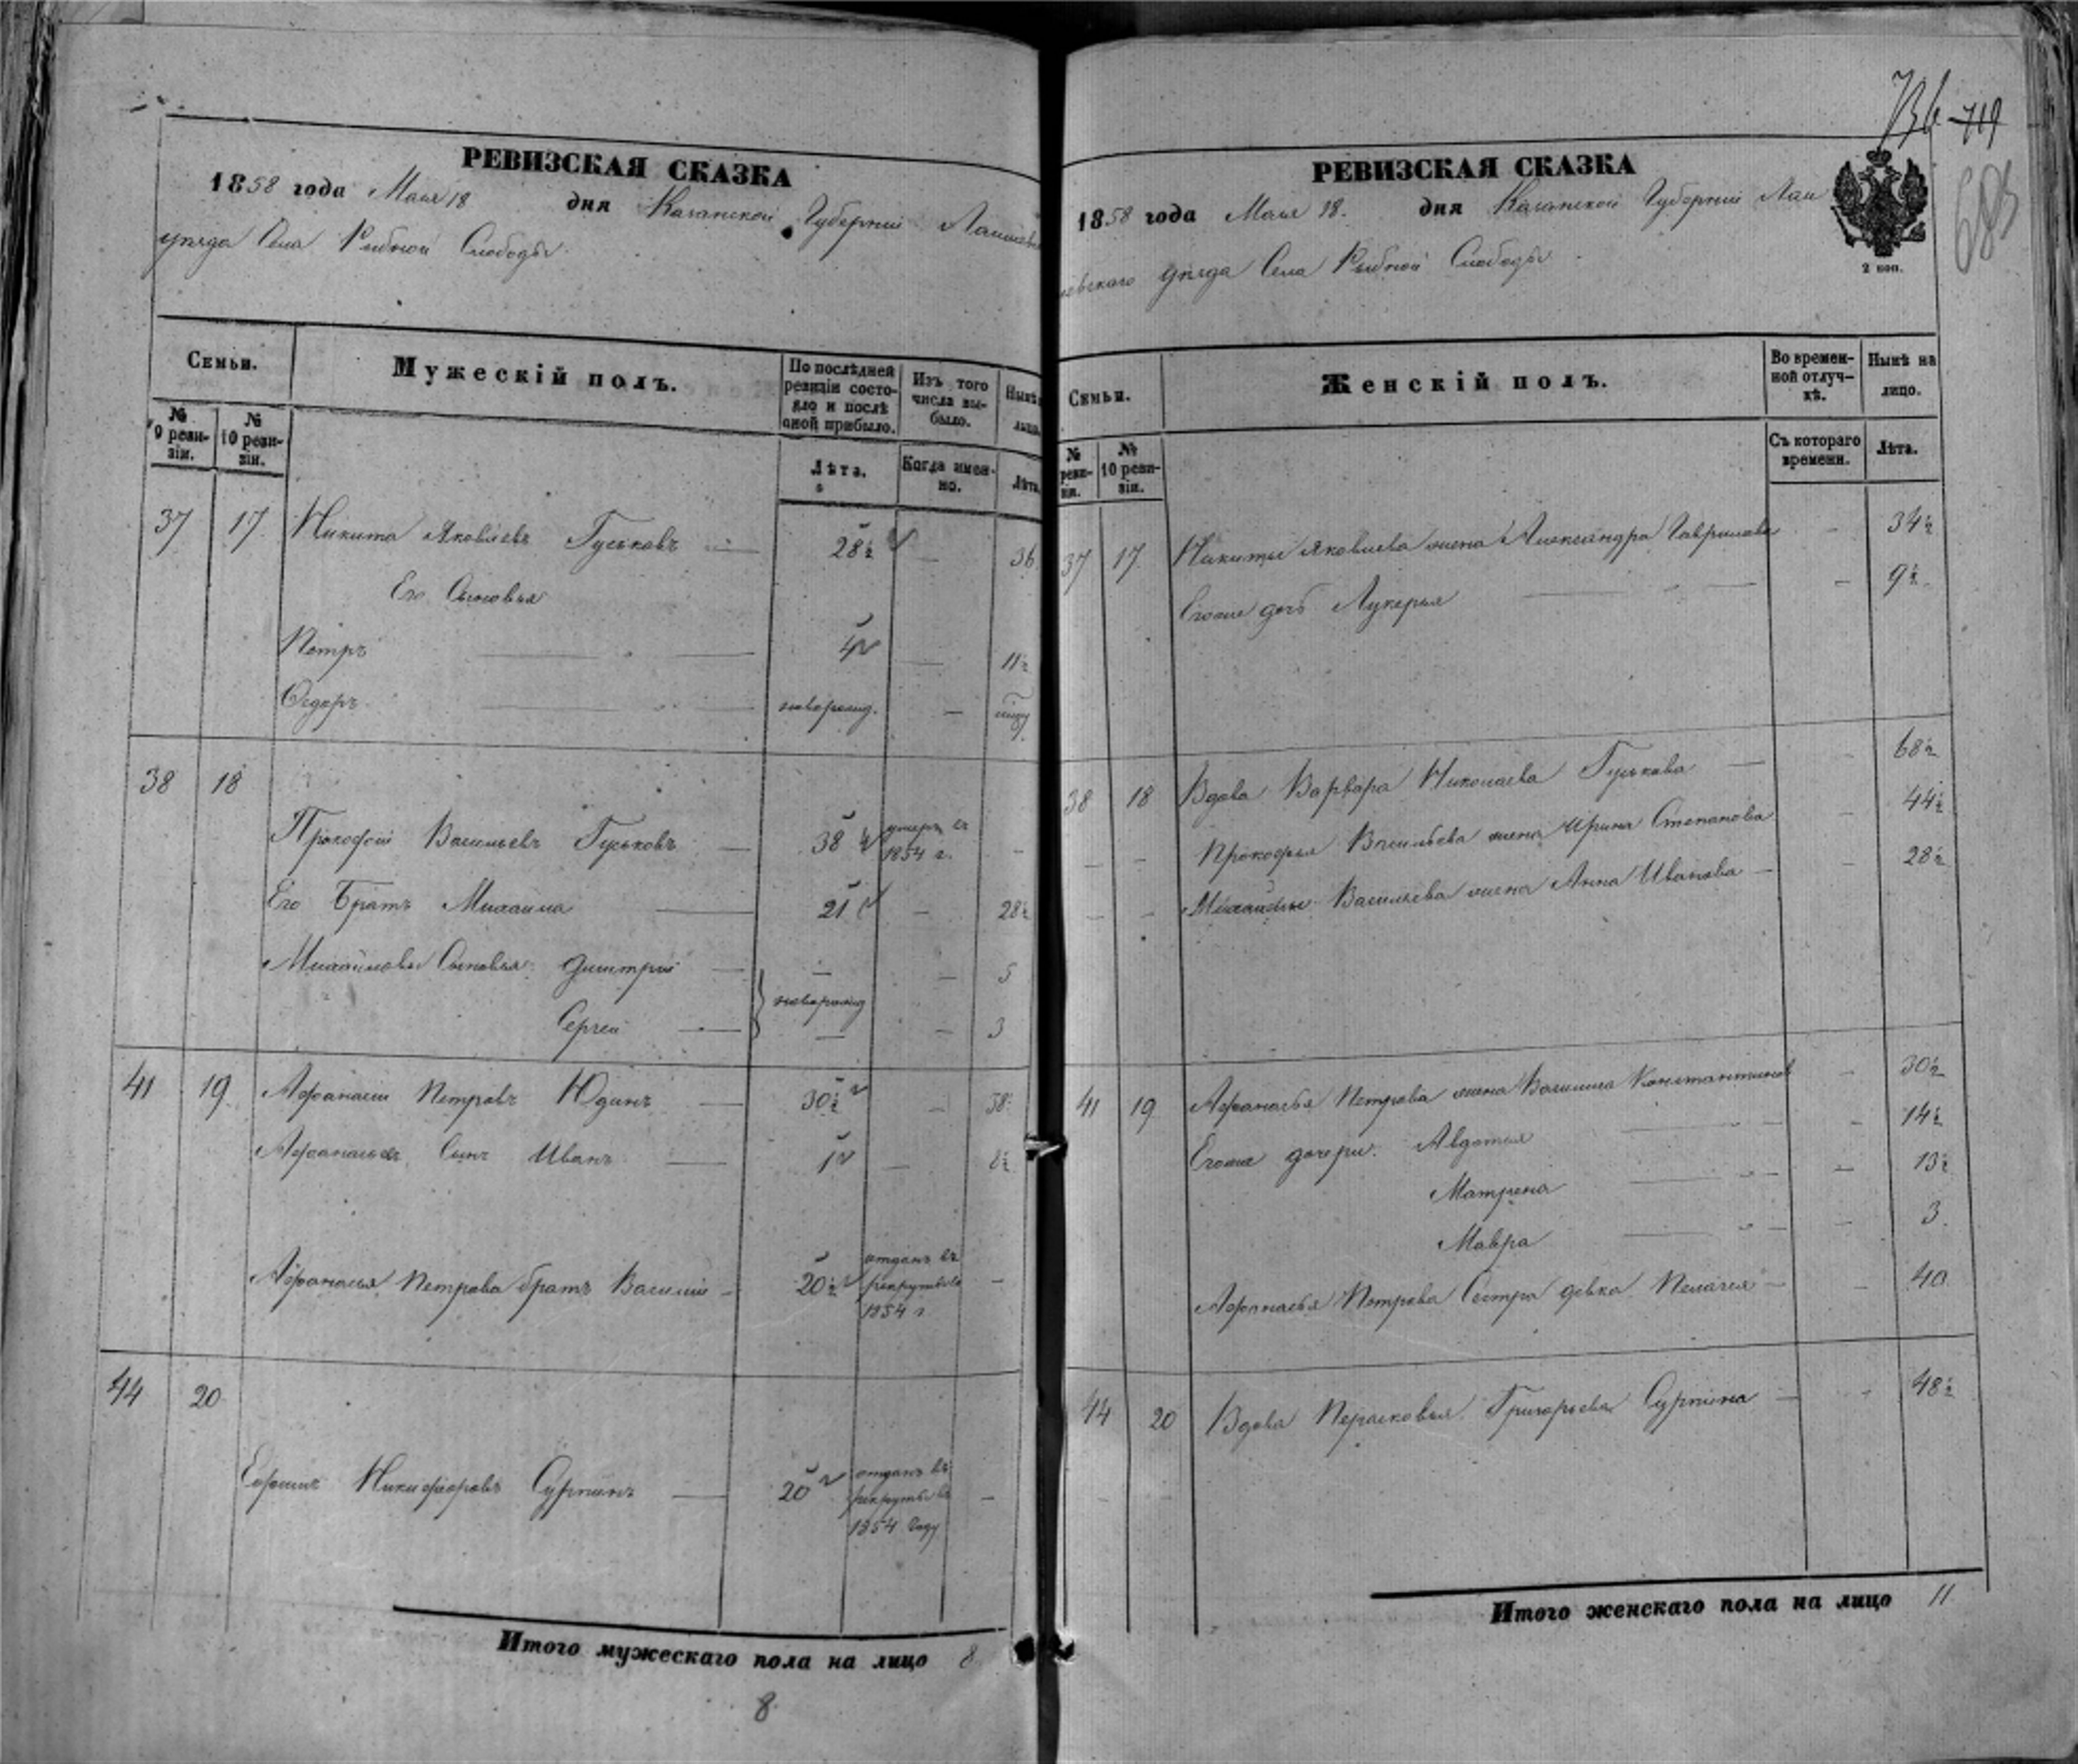 РЕВИЗСКАЯ СКАЗКА
1858 года Мая 18 дня Казанской Губернии Лаишев
уѣзда Села Рыбной Слободы
Семьи.
Мужескій полъ.
По послѣдней ревизіи состояло и послѣ оной прибыло.
Изъ того числа выбыло.
Нынѣ
лицо
№ 9 ревизіи.
№ 10 ревизіи.
Лѣта.
Когда именно.
Лѣта
37 17 Никита Яковлевъ Гуськовъ 28½ — 36
Его Сыновья
Петръ 4 — 11½
Ѳедоръ новорожд. —
38 18
Прокофій Васильевъ Гуськовъ — 38 умеръ въ 1854 г. -
Его Братъ Михайла — 21 — 28½
Михайловы Сыновья Димитрій — — — 5
новорожд
Сергей — — — 3
41 19 Афанасій Петровъ Юдинъ — 30½ — 38
Афанасья Сынъ Иванъ — 1 — 8½
Афанасья Петрова братъ Василій — 20½ отданъ въ рекруты въ 1854 г —
44 20
Ефимъ Никифоровъ Сурнинъ — 20 отданъ въ рекруты въ 1854 году —
Итого мужескаго пола на лицо 8
8
736 719
683
РЕВИЗСКАЯ СКАЗКА
1858 года Мая 18. дня Казанской Губерніи Лаи
шевскаго уѣзда Села Рыбной Слободы
2 коп.
Семьи.
Женскій полъ.
Во временной отлучкѣ.
Нынѣ на лицо.
№ ревизіи.
№ 10 ревизіи.
Съ котораго времени.
Лѣта.
37 17 Никиты Яковлева жена Александра Гаврилова — 34½
Егоже дочь Лукерья — 9½
38 18 Вдова Варвара Николаева Гуськова — 68½
— — Прокофья Васильева жена Ирина Степанова — 44½
— — Михайлы Васильева жена Анна Иванова — 28½
41 19 Афанасья Петрова жена Василиса Константинов — 30½
Егоже дочери: Авдотья — 14½
Матрена — 13½
Мавра — 3.
Афанасья Петрова Сестра девка Пелагея — 40
44 20 Вдова Перасковья Григорьева Сурнина — 48½
Итого женскаго пола на лицо 11